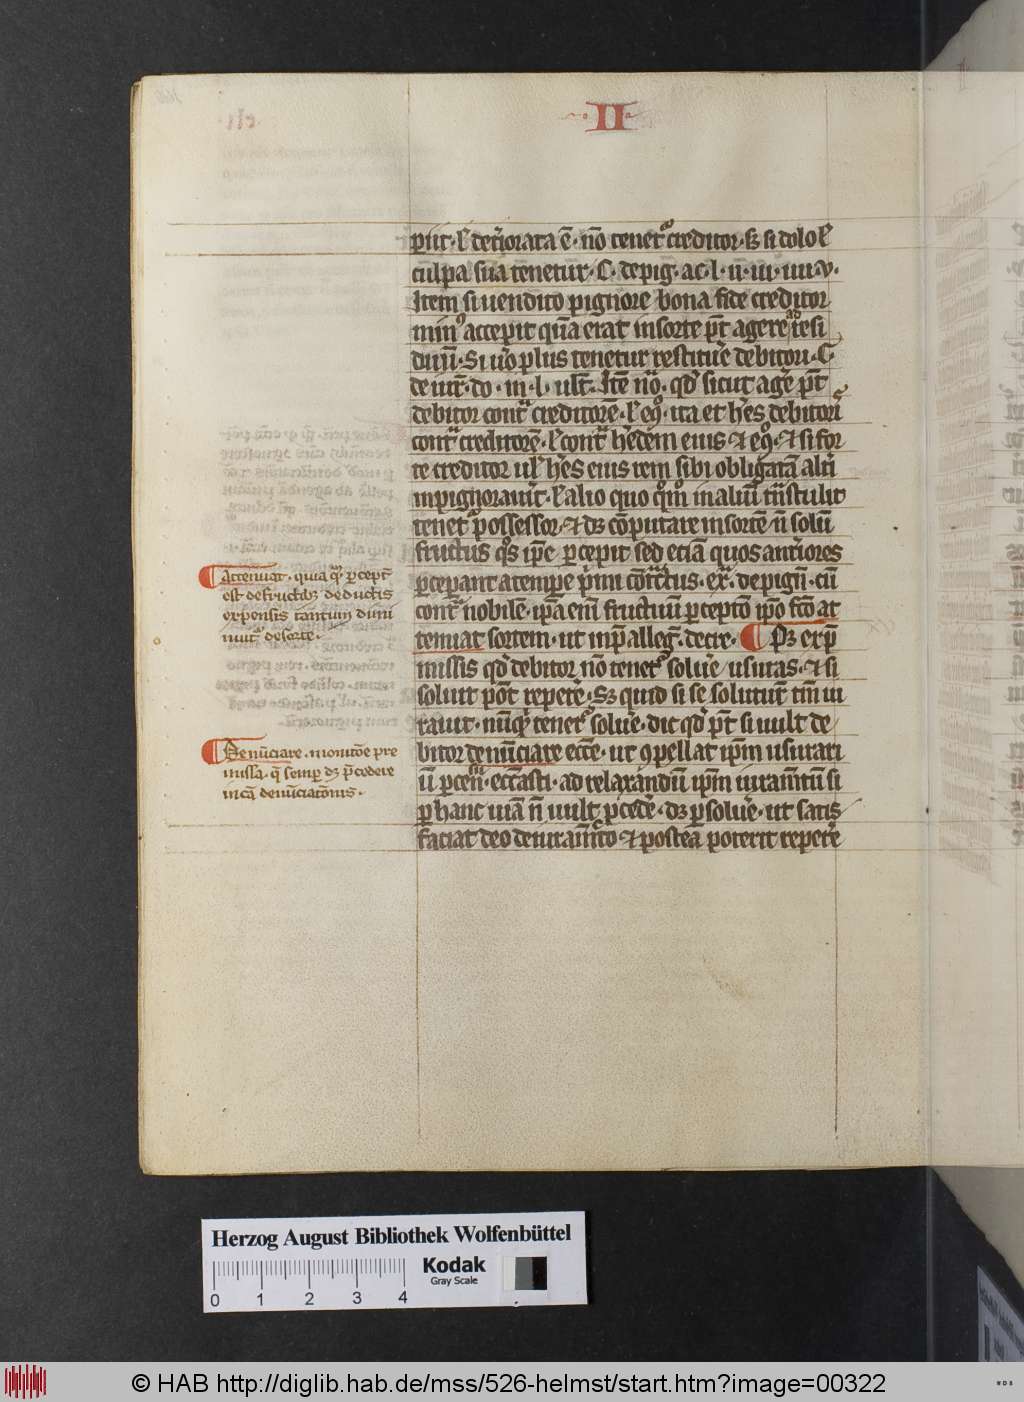 II
piit · ł det̃iorata ē · nō tenet᷒ creditor · s; si dolo ł
culpa sua tenetur · C · de pig̃ · ac · l · ii · iii · iiii · v ·
Item si uendito pignore bona fide creditor
min᷒ accepit qua̅ erat in sorte pt̄ agere ad resi
duū · Si u̅o plus tenetur restitue̅ debitori · C ·
de iur̃ · do · in · l · ult̃ · Itē no͛ · qd̄ sicut age̅ pt̄
debitor cont͛ creditorē · ł eq̊ · ita et h̅es debitori᷒
cont͛ creditorē · ł cont͛ h̅edem eius ⁊ eq̊ · ⁊ si for
te creditor ul̄ h̅es eius rem sibi obligatā alt̃i
inpignorauit̄ · ł alio quo q̊m̊ in aliū t͛nstulit
tenet᷒ possessor · ⁊ d; cōputare in sortē n̄ solū
fructus q̊s ip̄e percepit sed etiā quos ant̃iores
perceperant a tempe p̃mi cōt͛ctus · ex͛ · de pign̄ · cū
cont͛ nobilē · ip̄a eni̅ fructuū perceptō ip̄o fc̄o at
tenuat sortem · ut inp̄a alleg̃ · decre · ¶ P; ex p̄
missis qd̄ debitor nō tenet᷒ solue̅ usuras · ⁊ si
soluit pōt repete̅ · S; quid si se solutur̄ tn̄ iu
rauit · nu̅q͛d tenet᷒ solue̅ · dic qd̄ pt̄ si uult de
bitor denu̅ciare ecc̄e · ut ꝯpellat ip̄m usurari
ū per cen͛ · ecc̄asti · ad relaxandū ip̄m iuram̄tū si
per hanc uiā n̄ uult p̃cede̅ · d; persolue̅ · ut satis
faciat deo de iuram̄to ⁊ postea poterit repete̅
¶ Attenuat · quia q͛ percept̄
est de fructib; deductis
expensis tantum dimi
nuit᷒ de sorte ·
¶ Denu̅ciare · monitōe pre
missa · q̄ semper d; p̃cedere
in cā denu̅ciatōnis ·
Herzog August Bibliothek Wolfenbüttel
Kodak
Gray Scale
0 1 2 3 4
© HAB http://diglib.hab.de/mss/526-helmst/start.htm?image=00322